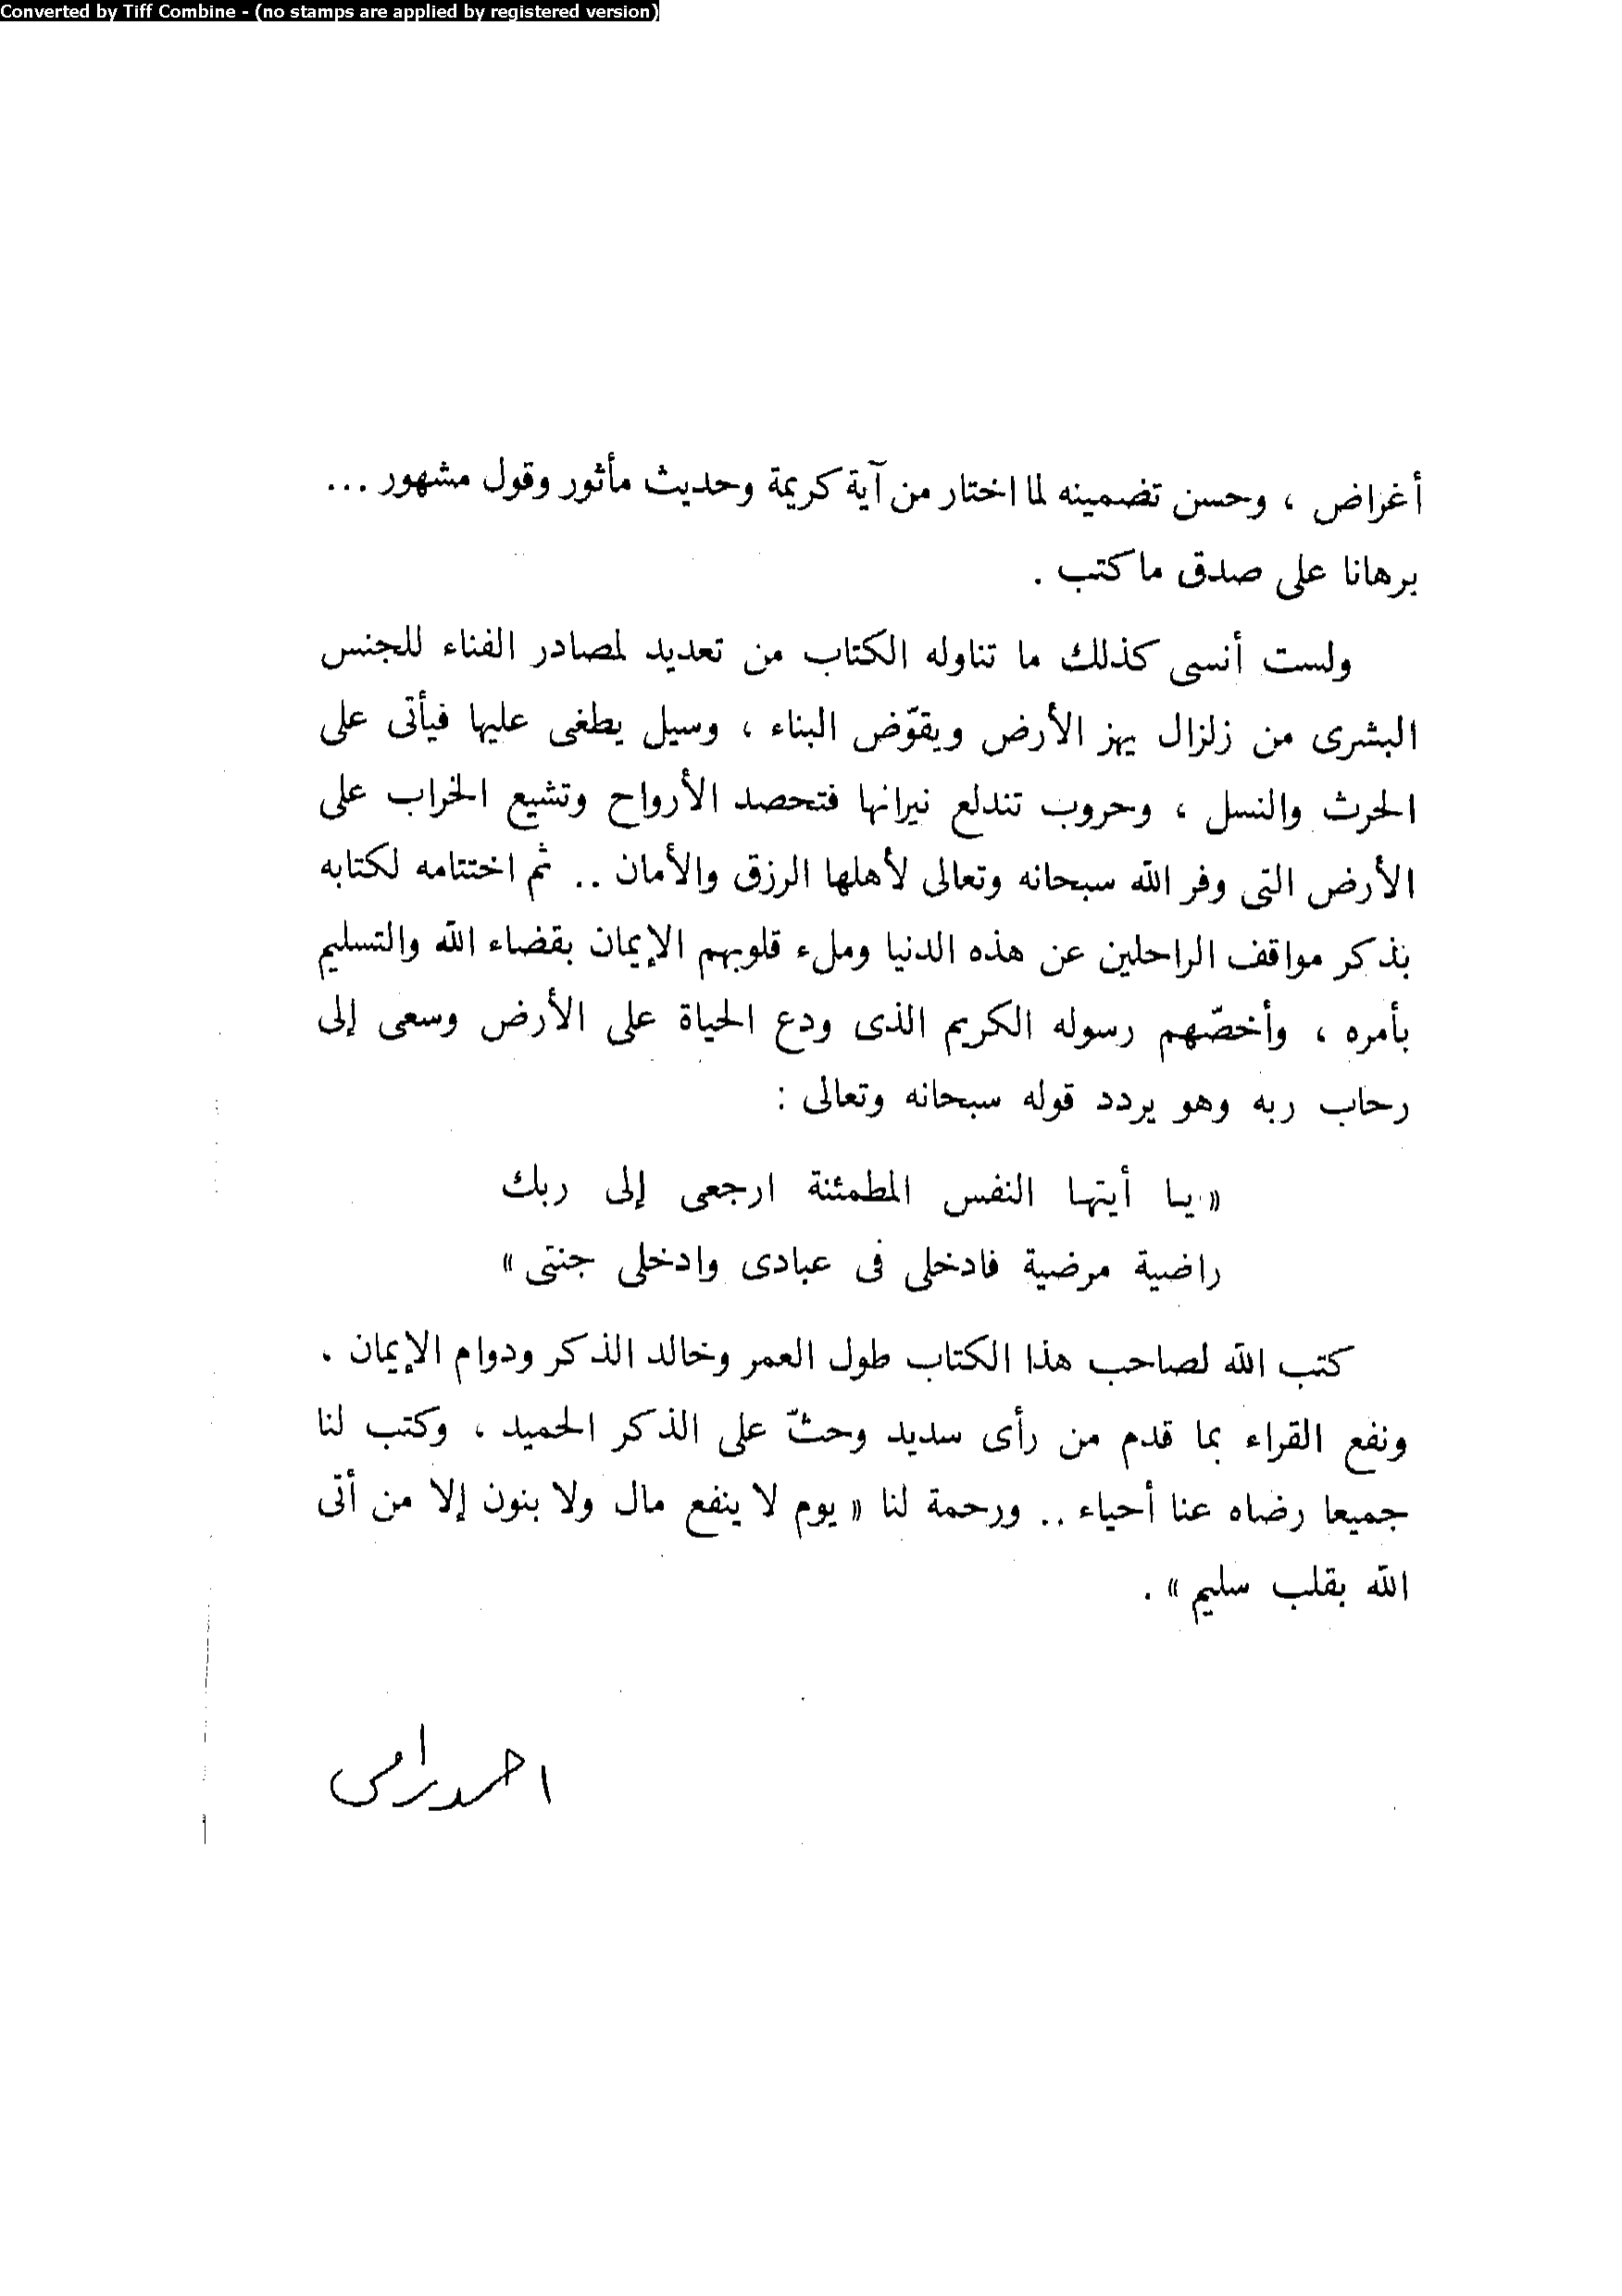 Converted by Tiff Combine - (no stamps are applied by registered version)
أغراض ، وحسن تضمينه لما اختار من آية كريمة وحديث مأثور وقول مشهور ...
برهانا على صدق ما كتب .
ولست أنسى كذلك ما تناوله الكتاب من تعديد لمصادر الفناء للجنس
البشرى من زلزال يهز الأرض ويقوّض البناء ، وسيل يطغى عليها فيأتى على
الحرث والنسل ، وحروب تندلع نيرانها فتحصد الأرواح وتشيع الخراب على
الأرض التى وفر الله سبحانه وتعالى لأهلها الرزق والأمان .. ثم اختتامه لكتابه
بذكر مواقف الراحلين عن هذه الدنيا وملء قلوبهم الإيمان بقضاء الله والتسليم
بأمره ، وأخصّهم رسوله الكريم الذى ودع الحياة على الأرض وسعى إلى
رحاب ربه وهو يردد قوله سبحانه وتعالى :
« يا أيتها النفس المطمئنة ارجعى إلى ربك
راضية مرضية فادخلى فى عبادى وادخلى جنتى »
كتب الله لصاحب هذا الكتاب طول العمر وخالد الذكر ودوام الإيمان .
ونفع القراء بما قدم من رأى سديد وحثّ على الذكر الحميد ، وكتب لنا
جميعا رضاه عنا أحياء .. ورحمة لنا « يوم لا ينفع مال ولا بنون إلا من أتى
الله بقلب سليم » .
احمد رامى